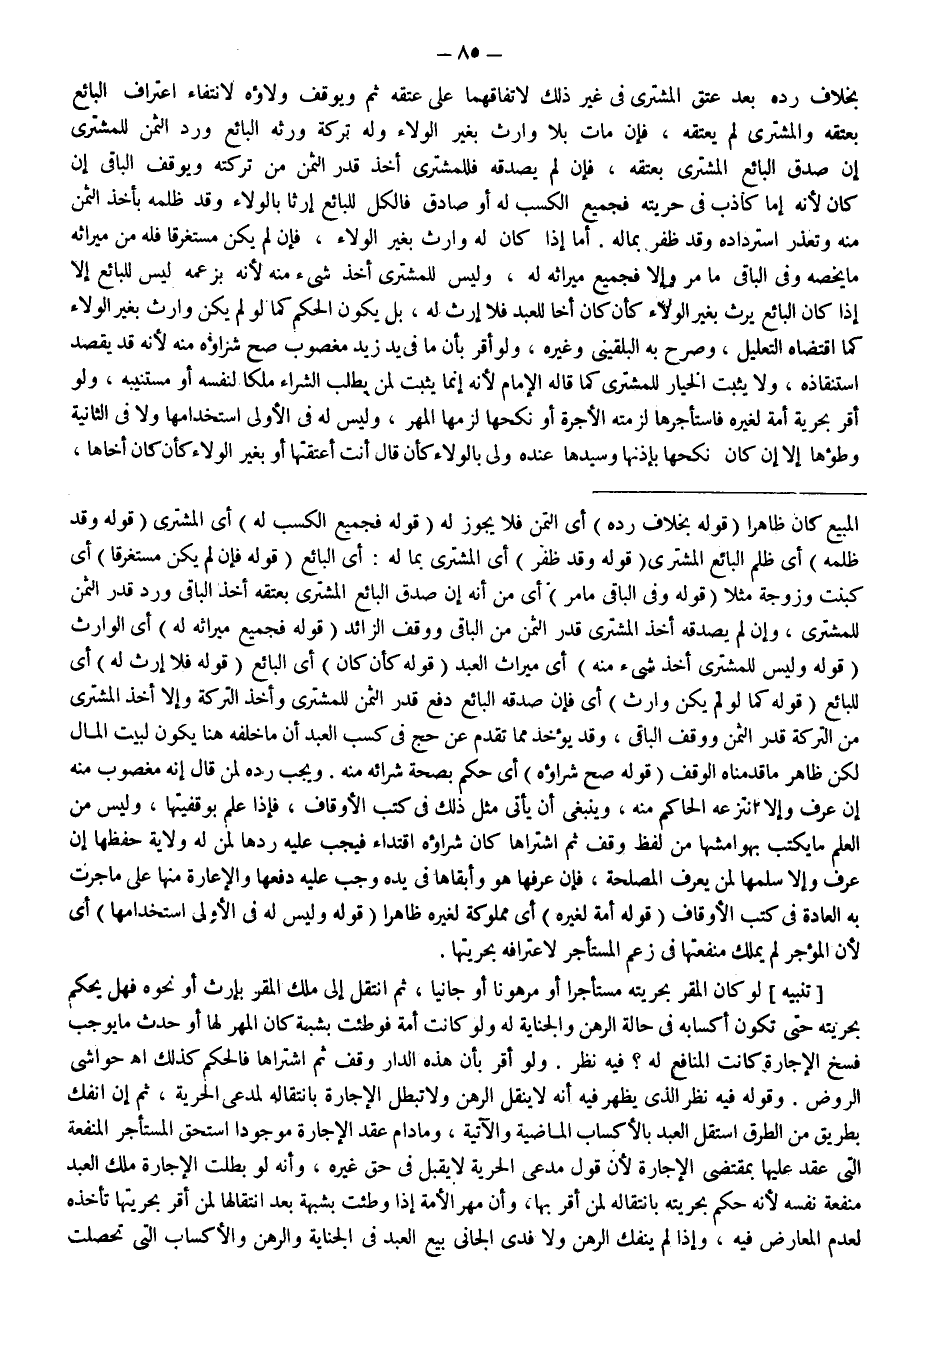 – ٨٥ –
بخلاف رده بعد عتق المشترى فى غير ذلك لاتفاقهما على عتقه ثم ويوقف ولاؤه لانتفاء اعتراف البائع
بعتقه والمشترى لم يعتقه ، فإن مات بلا وارث بغير الولاء وله تركة ورثه البائع ورد الثمن للمشترى
إن صدق البائع المشترى بعتقه ، فإن لم يصدقه فللمشترى أخذ قدر الثمن من تركته ويوقف الباقى إن
كان لأنه إما كاذب فى حريته فجميع الكسب له أو صادق فالكل للبائع إرثا بالولاء وقد ظلمه بأخذ الثمن
منه وتعذر استرداده وقد ظفر بماله . أما إذا كان له وارث بغير الولاء ، فإن لم يكن مستغرقا فله من ميراثه
مايخصه وفى الباقى ما مر وإلا فجميع ميراثه له ، وليس للمشترى أخذ شىء منه لأنه بزعمه ليس للبائع إلا
إذا كان البائع يرث بغير الولاء كأن كان أخا للعبد فلا إرث له ، بل يكون الحكم كما لو لم يكن وارث بغير الولاء
كما اقتضاه التعليل ، وصرح به البلقينى وغيره ، ولو أقر بأن ما فى يد زيد مغصوب صح شراؤه منه لأنه قد يقصد
استنقاذه ، ولا يثبت الخيار للمشترى كما قاله الإمام لأنه إنما يثبت لمن يطلب الشراء ملكا لنفسه أو مستنيبه ، ولو
أقر بحرية أمة لغيره فاستأجرها لزمته الأجرة أو نكحها لزمها المهر ، وليس له فى الأولى استخدامها ولا فى الثانية
وطؤها إلا إن كان نكحها بإذنها وسيدها عنده ولى بالولاء كأن قال أنت أعتقتها أو بغير الولاء كأن كان أخاها ،
المبيع كان ظاهرا ( قوله بخلاف رده ) أى الثمن فلا يجوز له ( قوله فجميع الكسب له ) أى المشترى ( قوله وقد
ظلمه ) أى ظلم البائع المشترى ( قوله وقد ظفر ) أى المشترى بما له : أى البائع ( قوله فإن لم يكن مستغرقا ) أى
كبنت وزوجة مثلا ( قوله وفى الباقى مامر ) أى من أنه إن صدق البائع المشترى بعتقه أخذ الباقى ورد قدر الثمن
للمشترى ، وإن لم يصدقه أخذ المشترى قدر الثمن من الباقى ووقف الزائد ( قوله فجميع ميراثه له ) أى الوارث
( قوله وليس للمشترى أخذ شىء منه ) أى ميراث العبد ( قوله كأن كان ) أى البائع ( قوله فلا إرث له ) أى
للبائع ( قوله كما لو لم يكن وارث ) أى فإن صدقه البائع دفع قدر الثمن للمشترى وأخذ التركة وإلا أخذ المشترى
من التركة قدر الثمن ووقف الباقى ، وقد يؤخذ مما تقدم عن حج فى كسب العبد أن ماخلفه هنا يكون لبيت المال
لكن ظاهر ماقدمناه الوقف ( قوله صح شراؤه ) أى حكم بصحة شرائه منه . ويجب رده لمن قال إنه مغصوب منه
إن عرف وإلا انتزعه الحاكم منه ، وينبغى أن يأتى مثل ذلك فى كتب الأوقاف ، فإذا علم بوقفيتها ، وليس من
العلم مايكتب بهوامشها من لفظ وقف ثم اشتراها كان شراؤه اقتداء فيجب عليه ردها لمن له ولاية حفظها إن
عرف وإلا سلمها لمن يعرف المصلحة ، فإن عرفها هو وأبقاها فى يده وجب عليه دفعها والإعارة منها على ماجرت
به العادة فى كتب الأوقاف ( قوله أمة لغيره ) أى مملوكة لغيره ظاهرا ( قوله وليس له فى الأولى استخدامها ) أى
لأن المؤجر لم يملك منفعتها فى زعم المستأجر لاعترافه بحريتها .
[ تنبيه ] لو كان المقر بحريته مستأجرا أو مرهونا أو جانيا ، ثم انتقل إلى ملك المقر بإرث أو نحوه فهل يحكم
بحريته حتى تكون أكسابه فى حالة الرهن والجناية له ولو كانت أمة فوطئت بشبهة كان المهر لها أو حدث مايوجب
فسخ الإجارة كانت المنافع له ؟ فيه نظر . ولو أقر بأن هذه الدار وقف ثم اشتراها فالحكم كذلك اه حواشى
الروض . وقوله فيه نظر الذى يظهر فيه أنه لاينقل الرهن ولاتبطل الإجارة بانتقاله لمدعى الحرية ، ثم إن انفك
بطريق من الطرق استقل العبد بالأكساب الماضية والآتية ، ومادام عقد الإجارة موجودا استحق المستأجر المنفعة
التى عقد عليها بمقتضى الإجارة لأن قول مدعى الحرية لايقبل فى حق غيره ، وأنه لو بطلت الإجارة ملك العبد
منفعة نفسه لأنه حكم بحريته بانتقاله لمن أقر بها، وأن مهر الأمة إذا وطئت بشبهة بعد انتقالها لمن أقر بحريتها تأخذه
لعدم المعارض فيه ، وإذا لم ينفك الرهن ولا فدى الجانى بيع العبد فى الجناية والرهن والأكساب التى تحصلت